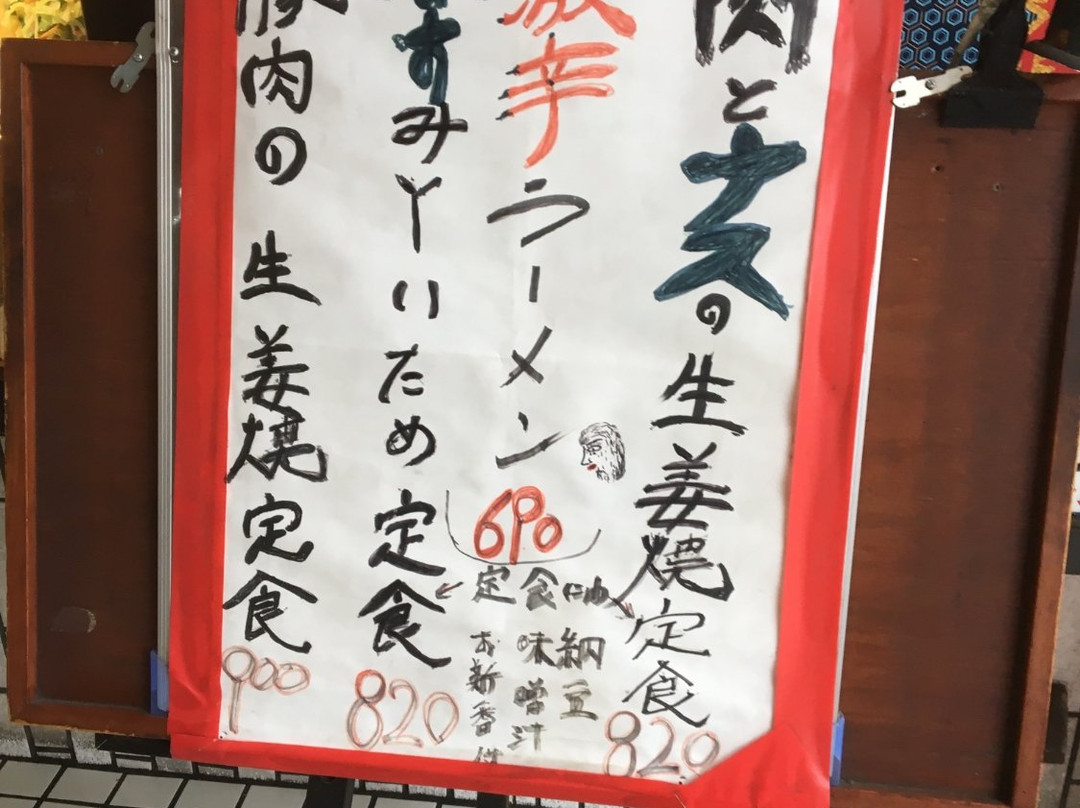 肉とナスの生姜焼定食
820
激辛ラーメン
690
定食には
納豆
味噌汁
お新香付
なすみそいため定食
820
豚肉の生姜焼定食
900